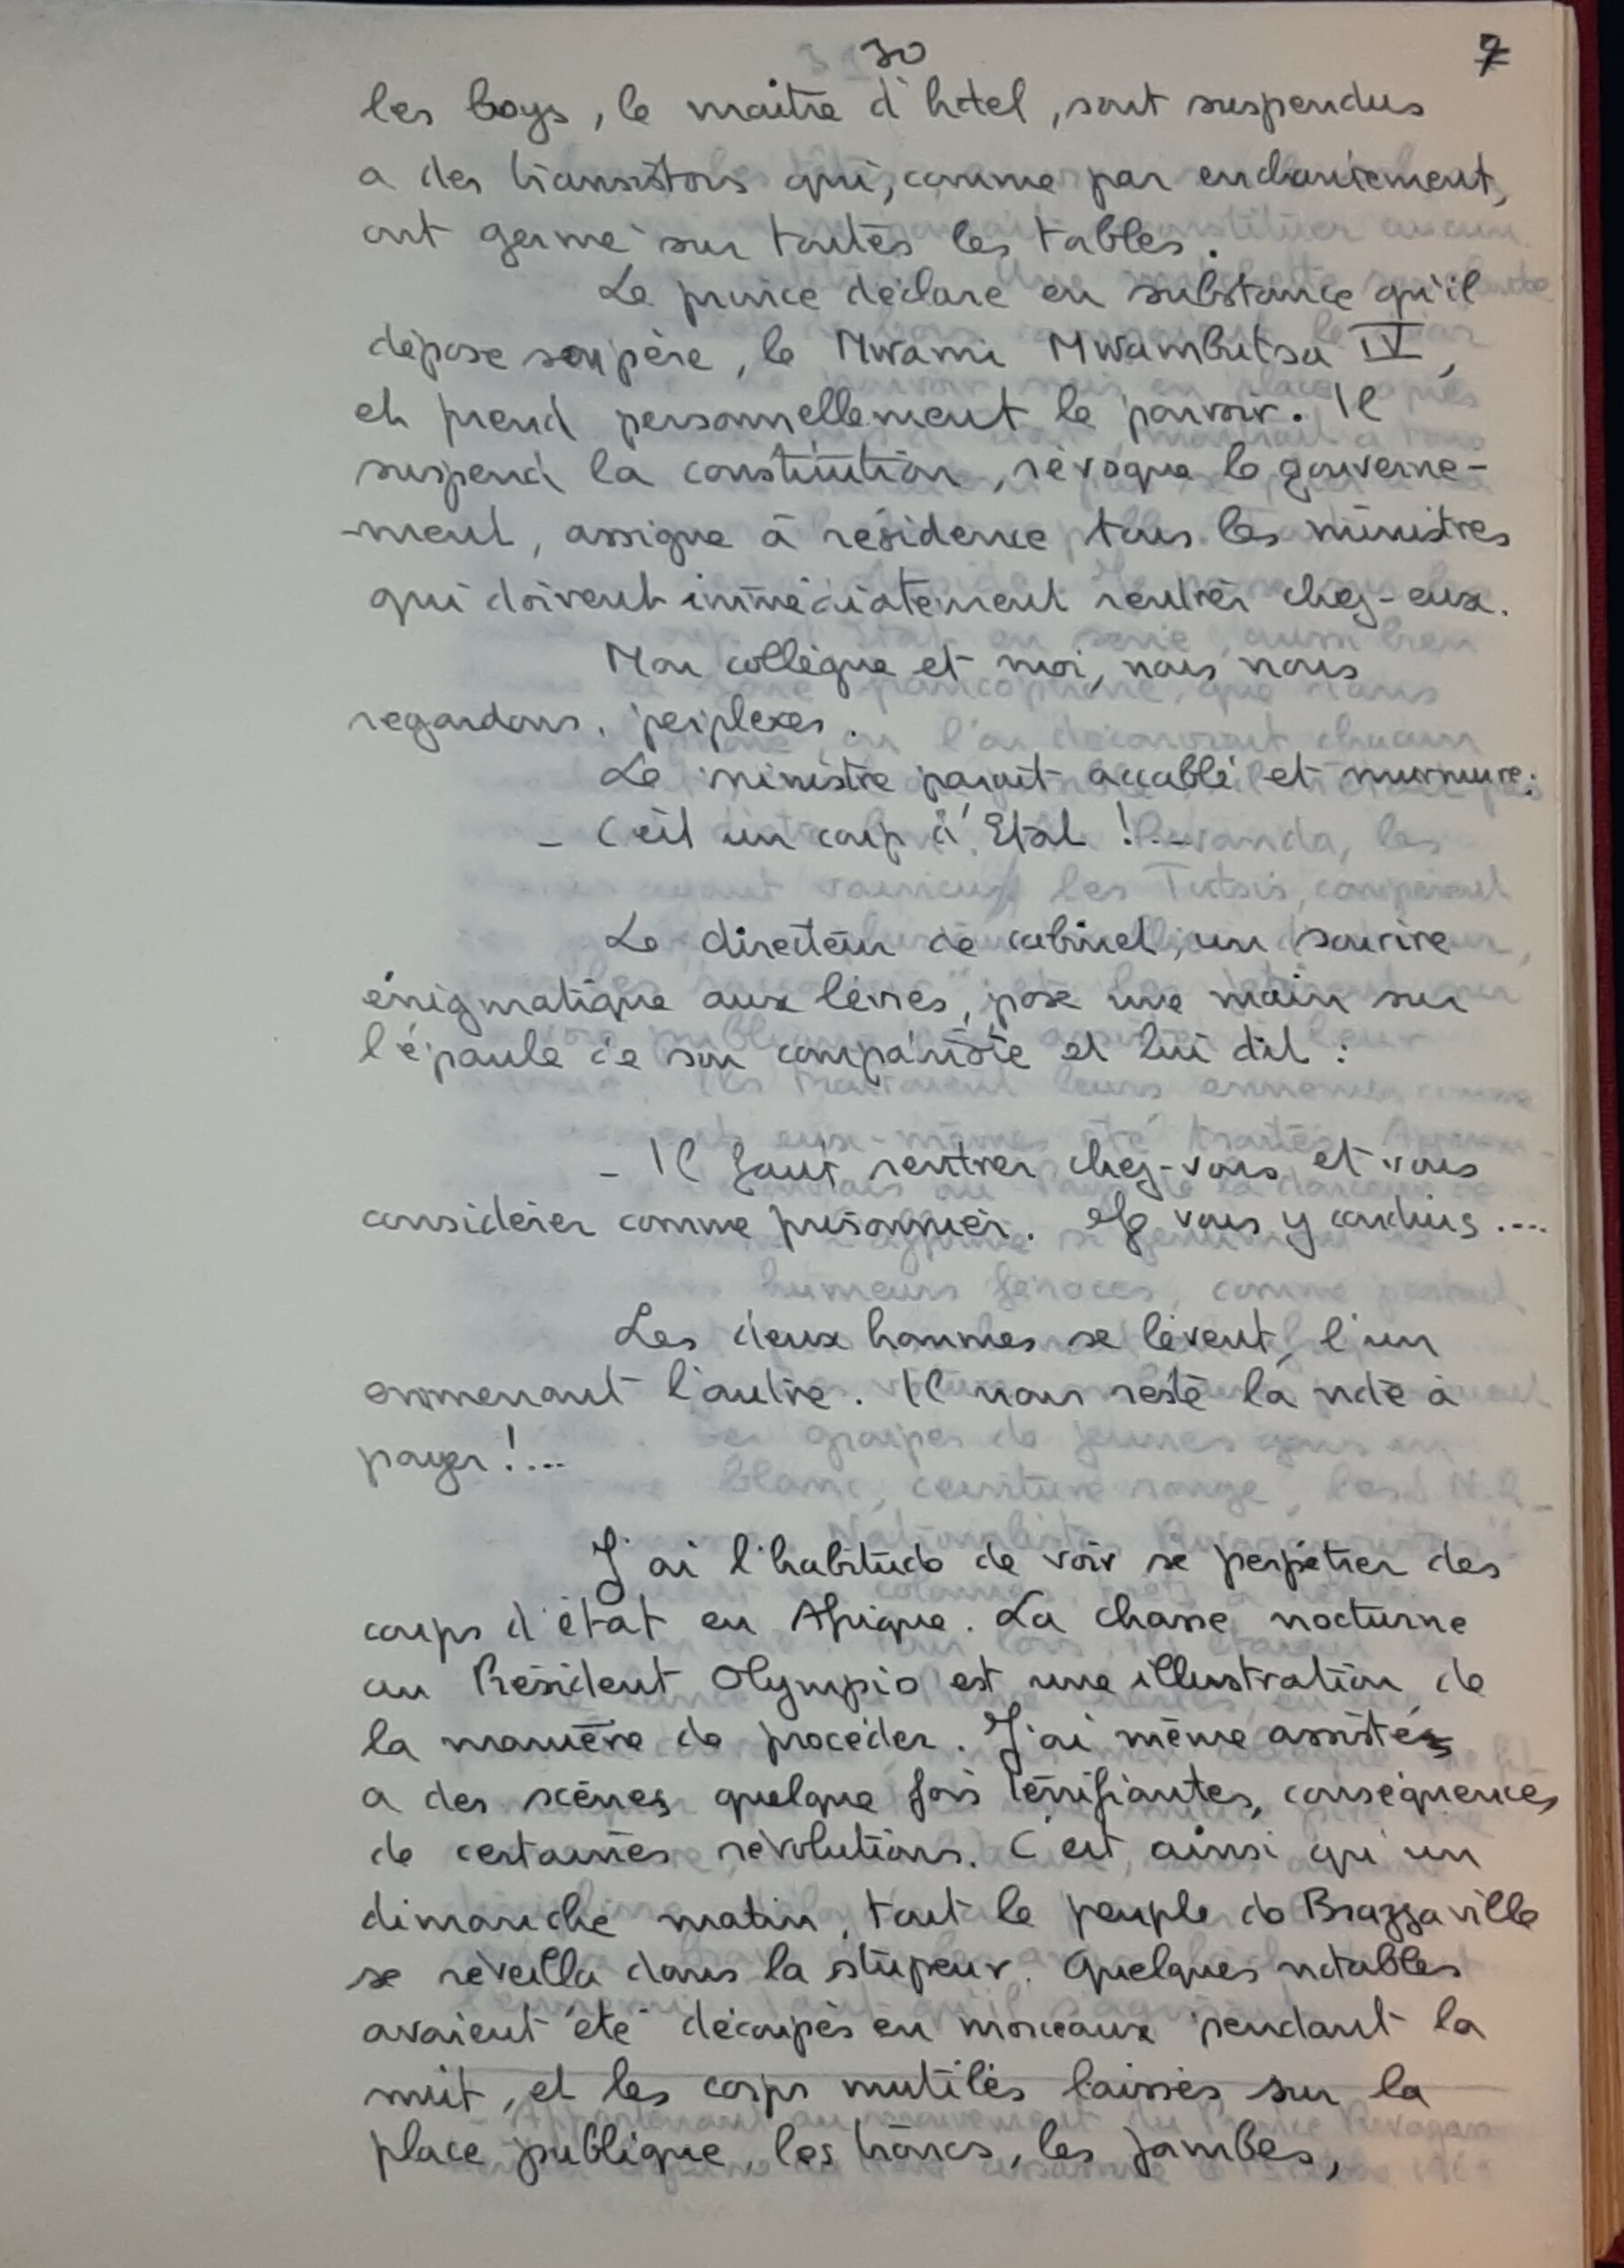 30
7
les boys, le maitre d'hotel, sont suspendus
a des transistors qui, comme par enchantement,
ont germé sur toutes les tables.
Le prince déclare en substance qu'il
dépose son père, le Mwami Mwambutsa IV,
et prend personnellement le pouvoir. Il
suspend la constitution, révoque le gouverne-
-ment, assigne à résidence tous les ministres
qui doivent immédiatement rentrer chez-eux.
Mon collègue et moi, nous nous
regardons, perplexes.
Le ministre parait accablé et murmure:
- C'est un coup d'Etat !..
Le directeur de cabinet, un sourire
énigmatique aux lèvres, pose une main sur
l'épaule de son compatriote et lui dit :
- Il faut rentrer chez-vous et vous
considérer comme prisonnier. Je vous y conduis ....
Les deux hommes se lèvent, l'un
emmenant l'autre. Il nous reste la note à
payer !...
J'ai l'habitude de voir se perpétrer des
coups d'état en Afrique. La chasse nocturne
au Président Olympio est une illustration de
la manière de procéder. J'ai même assisté
a des scènes quelque fois terrifiantes, conséquences
de certaines révolutions. C'est ainsi qu'un
dimanche matin, tout le peuple de Brazzaville
se réveilla dans la stupeur. Quelques notables
avaient été découpés en morceaux pendant la
nuit, et les corps mutilés laissés sur la
place publique, les troncs, les jambes,